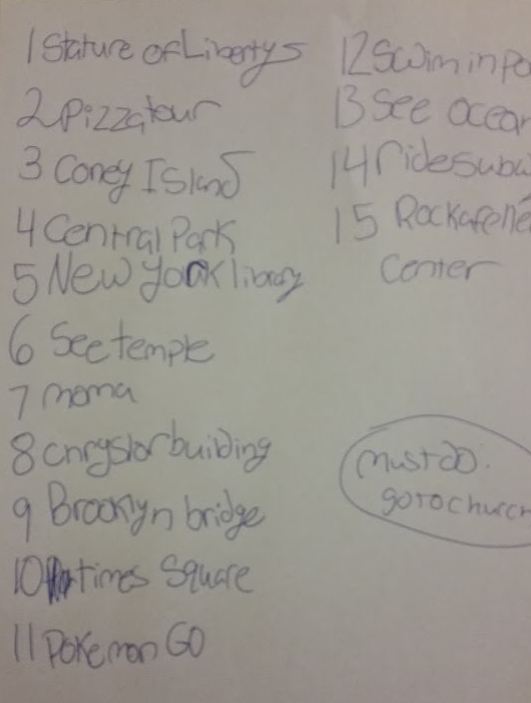 1 Stature of Libertys
2 Pizza tour
3 Coney Island
4 Central Park
5 New York library
6 See temple
7 moma
8 chryslor building
9 Brooklyn bridge
10 times Square
11 Pokemon GO
12 Swim in po
13 See ocean
14 ride subw
15 Rockafelle
Center
must do.
go to church